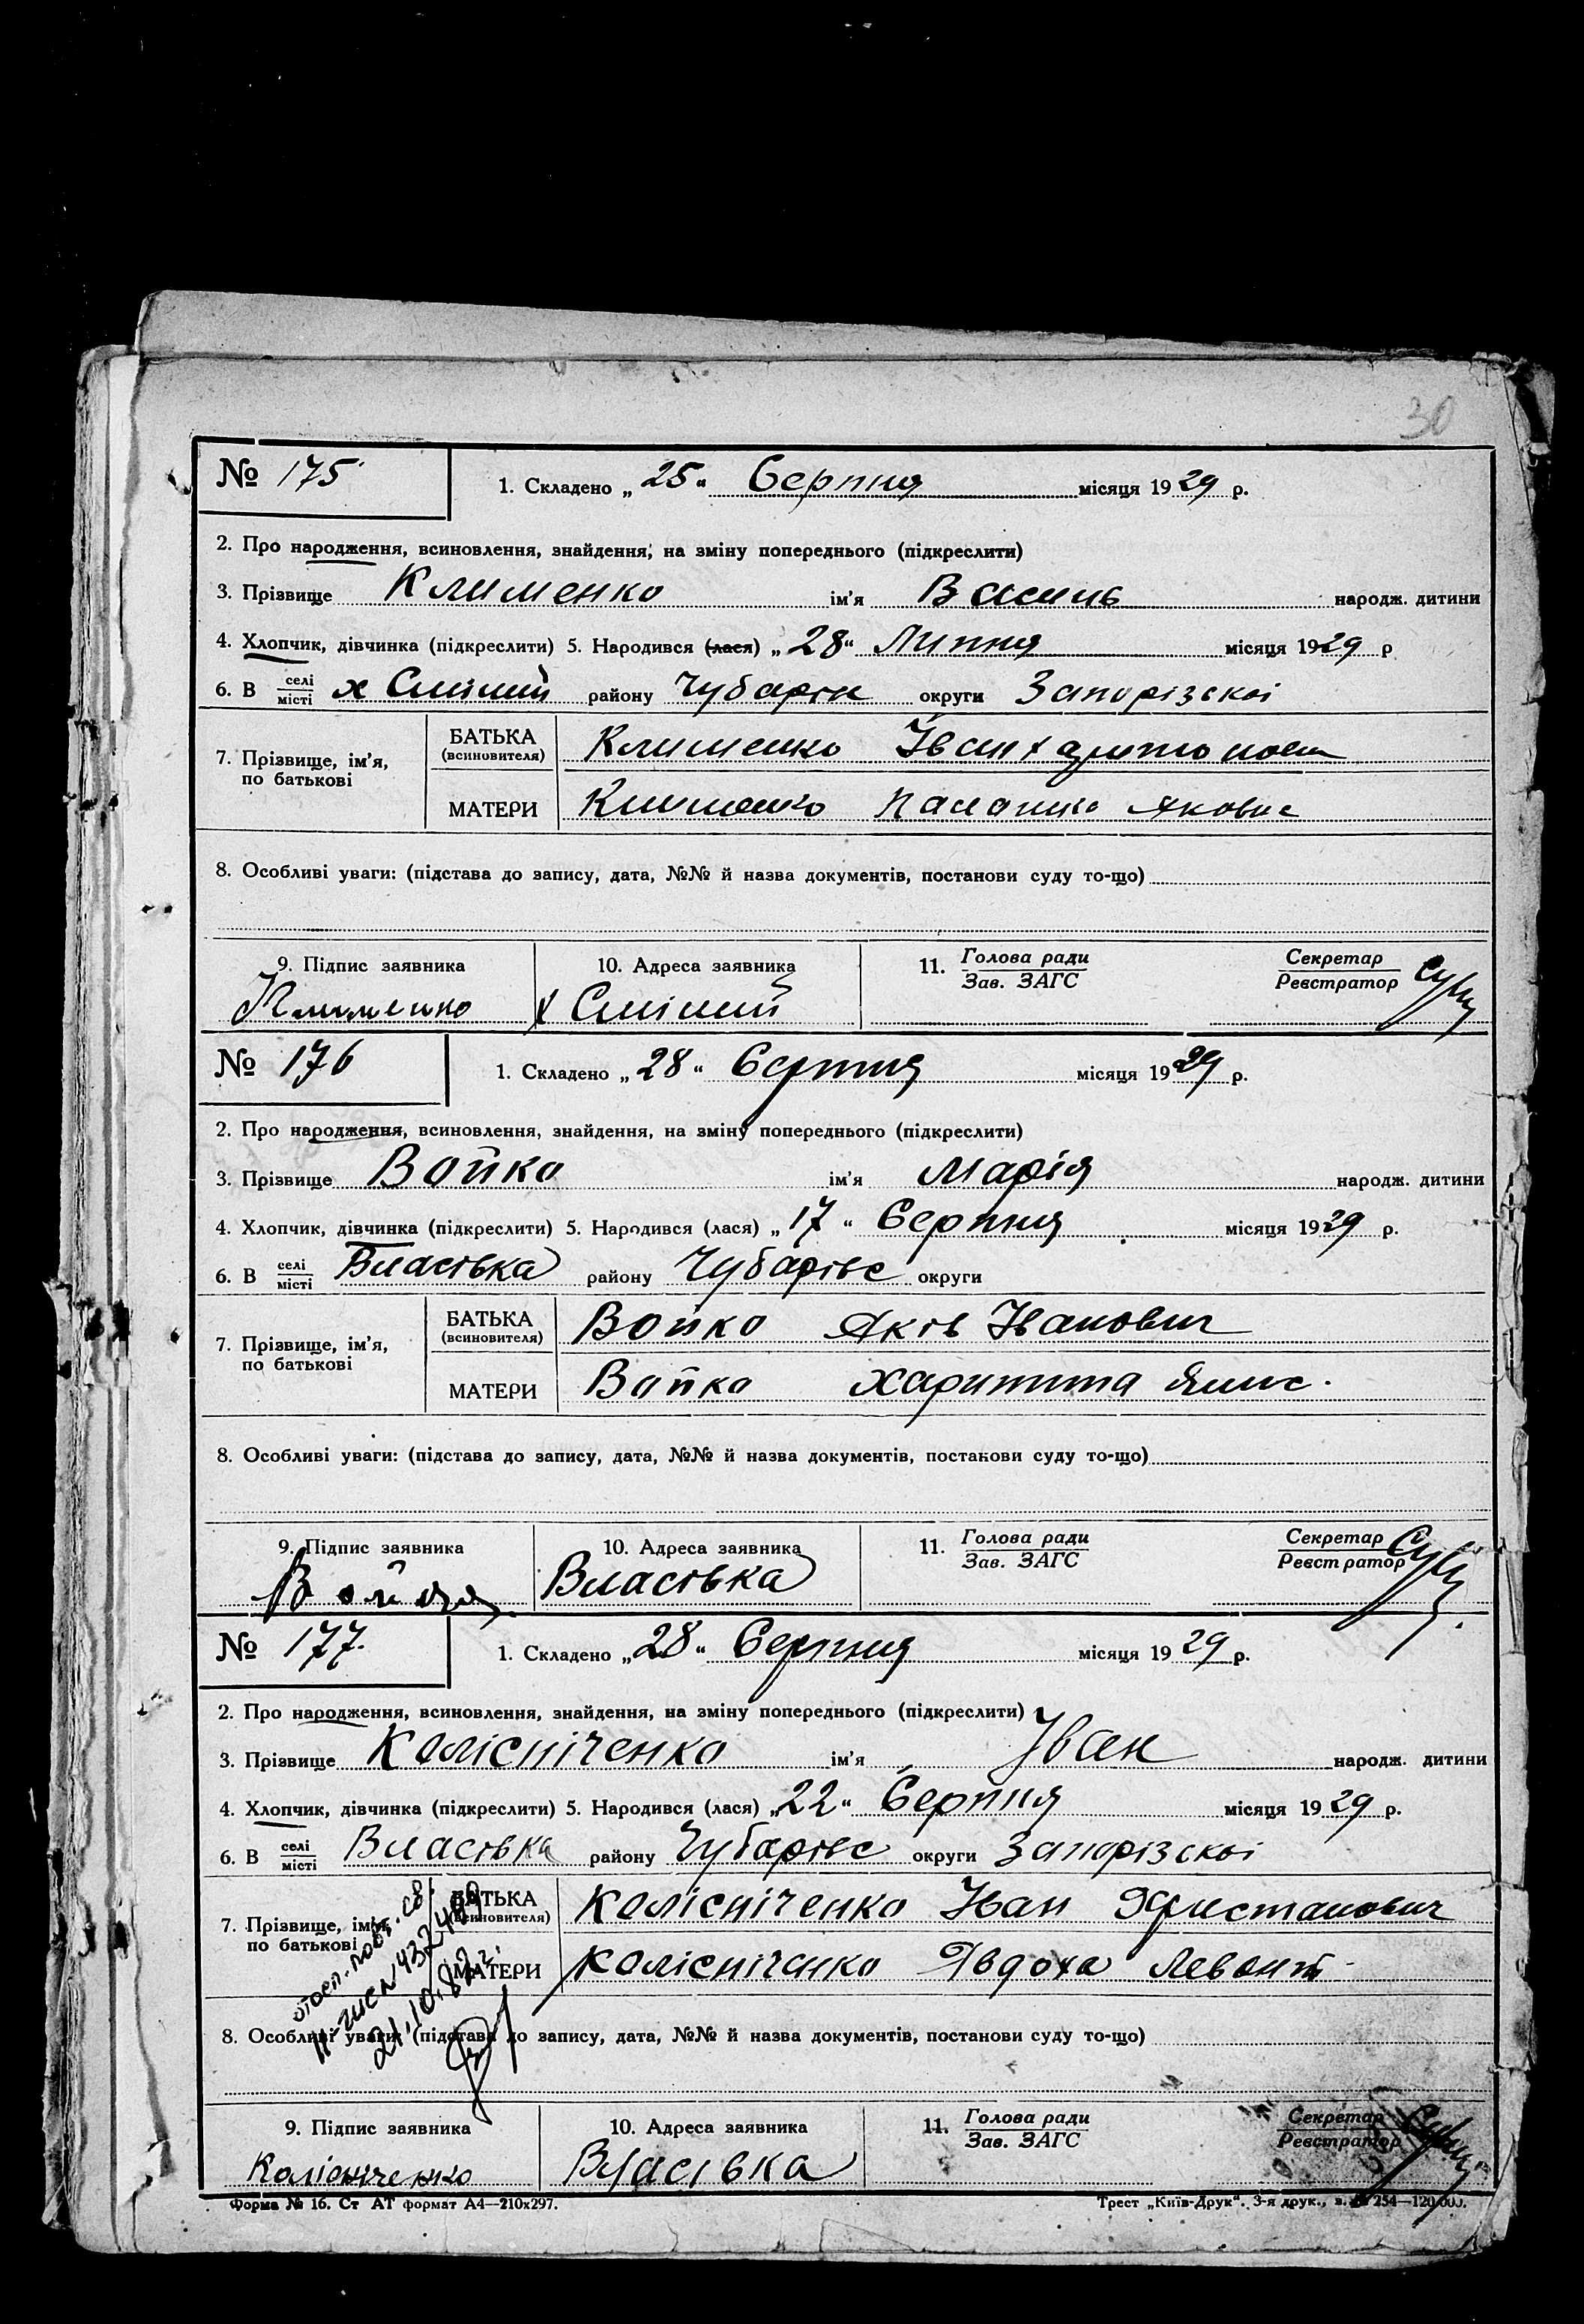 30
№ 175
1. Складено „ 25 “ Серпня місяця 19 29 р.
2. Про народження, всиновлення, знайдення, на зміну попереднього (підкреслити)
3. Прізвище Клименко ім’я Василь народж. дитини
4. Хлопчик, дівчинка (підкреслити) 5. Народився (лася) „ 28 “ Липня місяця 19 29 р
6. В селі/місті х Смілий району Чубарівс округи Запорізскоі
7. Прізвище, ім’я, по батькові
БАТЬКА (всиновителя) Клименко Іван
МАТЕРИ Клименко Паланка Яковис
8. Особливі уваги: (підстава до запису, дата, №№ й назва документів, постанови суду то-що)
9. Підпис заявника 10. Адреса заявника 11. Голова ради/Зав. ЗАГС Секретар/Реєстратор
Клименко х Смілий
№ 176
1. Складено „ 28 “ Серпня місяця 19 29 р.
2. Про народження, всиновлення, знайдення, на зміну попереднього (підкреслити)
3. Прізвище Войко ім’я Марія народж. дитини
4. Хлопчик, дівчинка (підкреслити) 5. Народився (лася) „ 17 “ Серпня місяця 19 29 р.
6. В селі/місті Власівка району Чубарівс округи
7. Прізвище, ім’я, по батькові
БАТЬКА (всиновителя) Войко Яків Іванович
МАТЕРИ Войко Харитина
8. Особливі уваги: (підстава до запису, дата, №№ й назва документів, постанови суду то-що)
9. Підпис заявника 10. Адреса заявника 11. Голова ради/Зав. ЗАГС Секретар/Реєстратор
Власівка
№ 177.
1. Складено „ 28 “ Серпня місяця 19 29 р.
2. Про народження, всиновлення, знайдення, на зміну попереднього (підкреслити)
3. Прізвище Коліспіченко ім’я Іван народж. дитини
4. Хлопчик, дівчинка (підкреслити) 5. Народився (лася) „ 22 “ Серпня місяця 19 29 р.
6. В селі/місті Власівка району Чубарівс округи Запорізскоі
7. Прізвище, ім’я, по батькові
БАТЬКА (всиновителя) Коліспіченко Іван
МАТЕРИ Коліспіченко Явдоха Левонт
21.10.82 г.
8. Особливі уваги: (підстава до запису, дата, №№ й назва документів, постанови суду то-що)
9. Підпис заявника 10. Адреса заявника 11. Голова ради/Зав. ЗАГС Секретар/Реєстратор
Колісніченко Власівка
Форма № 16. Ст АТ формат А4—210х297. Трест „Київ-Друк“. 3-я друк., з. № 254—120.000.